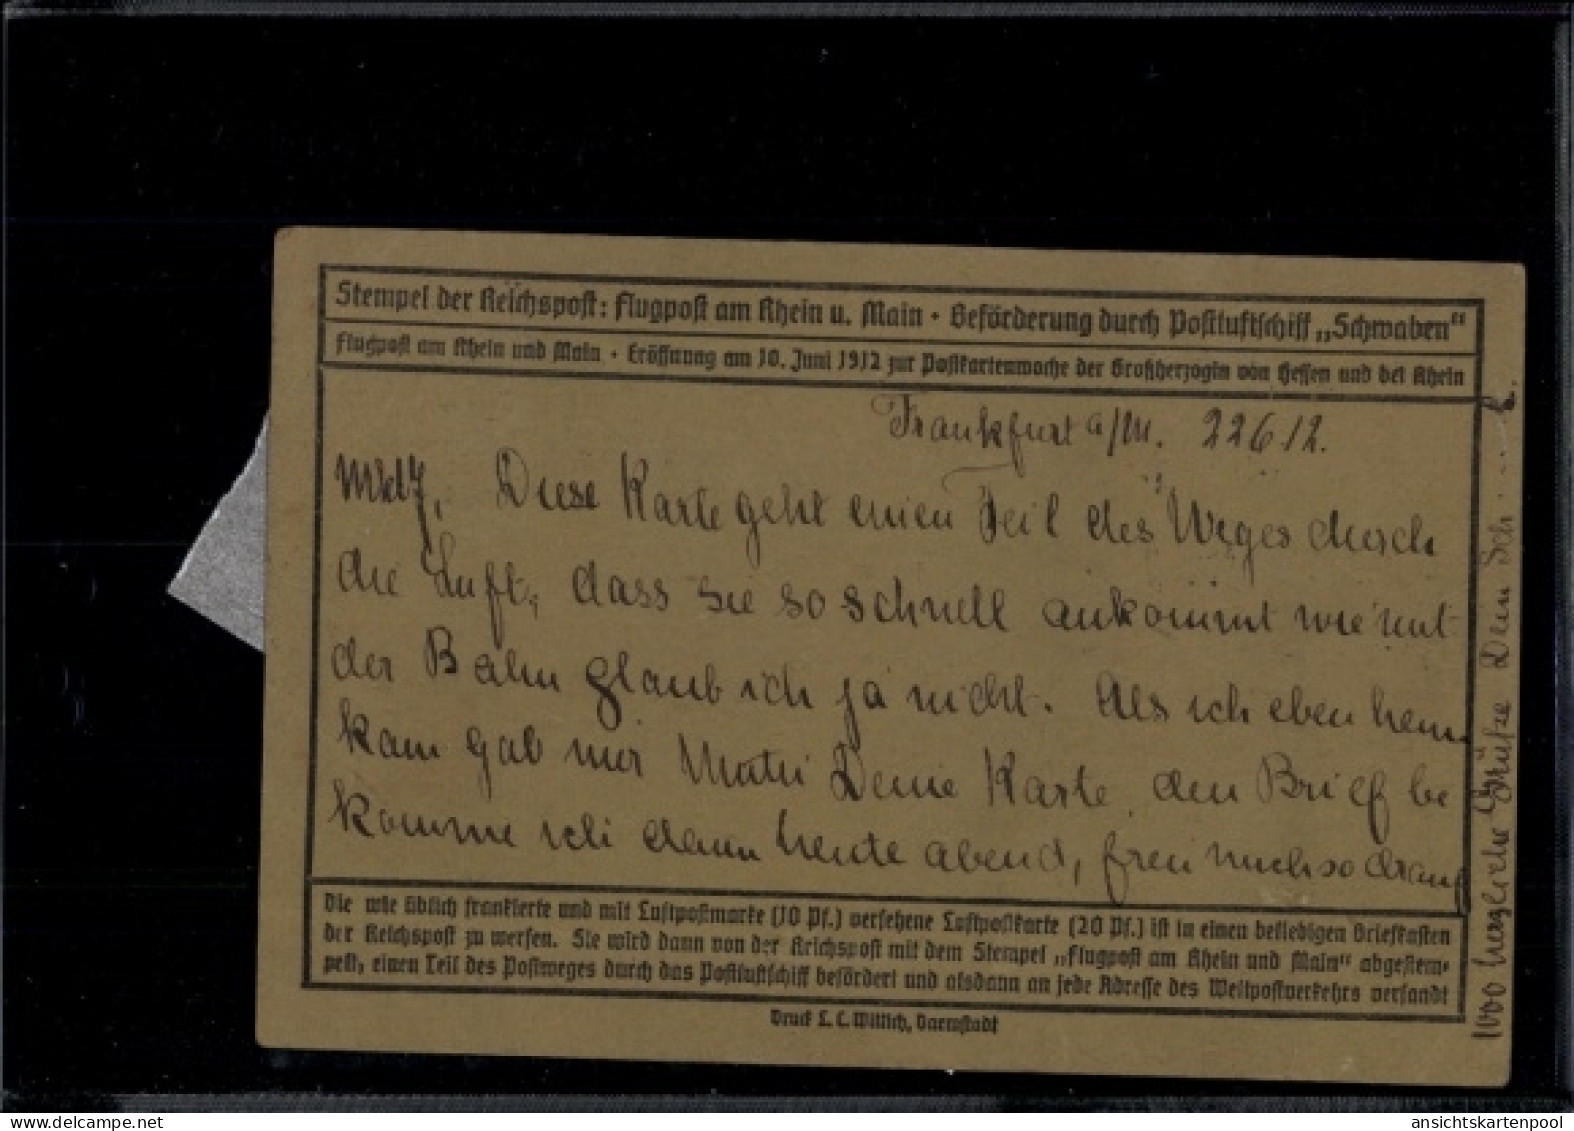 Stempel der Reichspost: Flugpost am Rhein u. Main · Beförderung durch Postluftschiff „Schwaben“
Flugpost am Rhein und Main · Eröffnung am 10. Juni 1912 zur Postkartenwoche der Großherzogin von Hessen und bei Rhein
Frankfurt a/M. 22 6 12.
Diese Karte geht einen Teil des Weges durch
die Luft, dass sie so schnell ankommt wie mit
der Bahn glaub ich ja nicht. Als ich eben heim
kam gab mir Mutti Deine Karte, den Brief be
komme ich dann heute abend, freu mich so drauf
1000 herzliche Grüsse Dein
Die wie üblich frankierte und mit Luftpostmarke (10 Pf.) versehene Luftpostkarte (20 Pf.) ist in einen beliebigen Briefkasten
der Reichspost zu werfen. Sie wird dann von der Reichspost mit dem Stempel „Flugpost am Rhein und Main“ abgestem-
pelt, einen Teil des Postweges durch das Postluftschiff befördert und alsdann an jede Adresse des Weltpostverkehrs versandt
Druck L. C. Wittich, Darmstadt
ansichtskartenpool